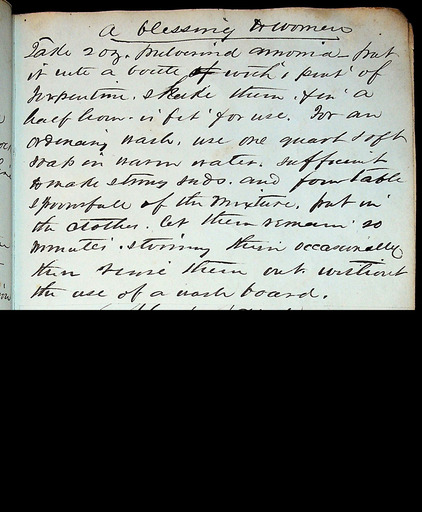 A blessing to women
Take 2 oz. pulverised amonia - put
it into a bottle of with 1 pint of
Turpentine. shake them. & in a
half hour. is fit for use. For an
ordinary wash. use one quart soft
soap in warm water. sufficient
to make strong suds. and four table
spoonsfull of the mixture. put in
the clothes. let them remain 20
minutes. stirring them occasionally
then rense them out without
the use of a wash board.